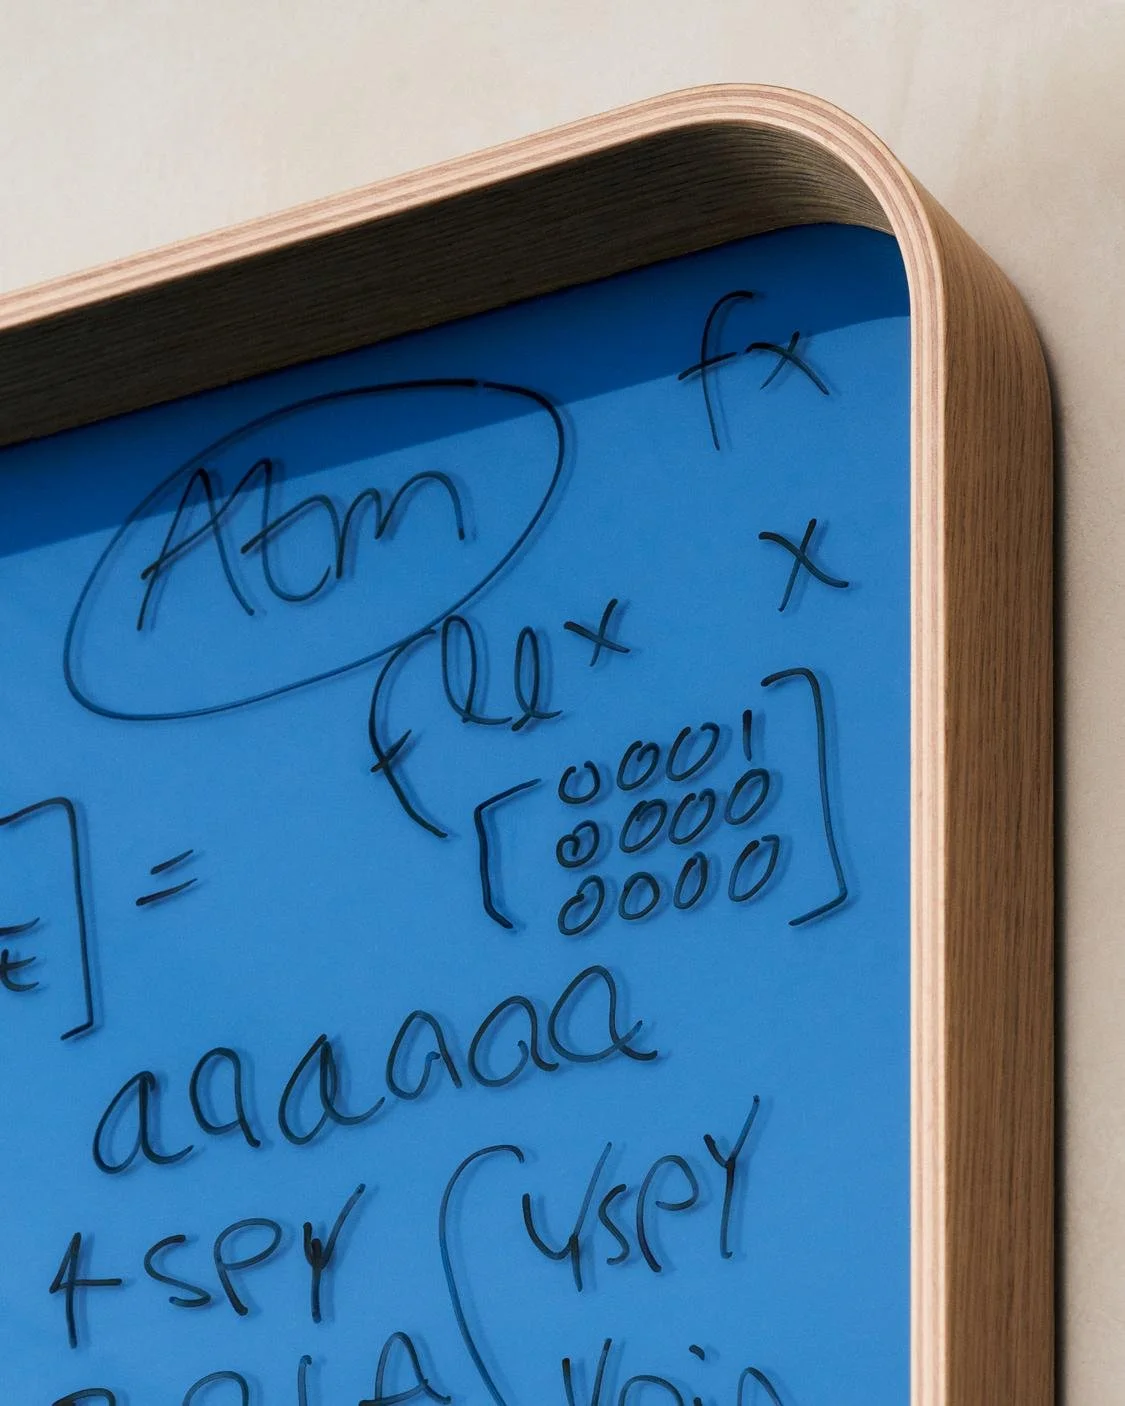 fx
Atm
x
flex
[0001
0000
0000]
]=
t
aaaaaa
4SPY (4SPY